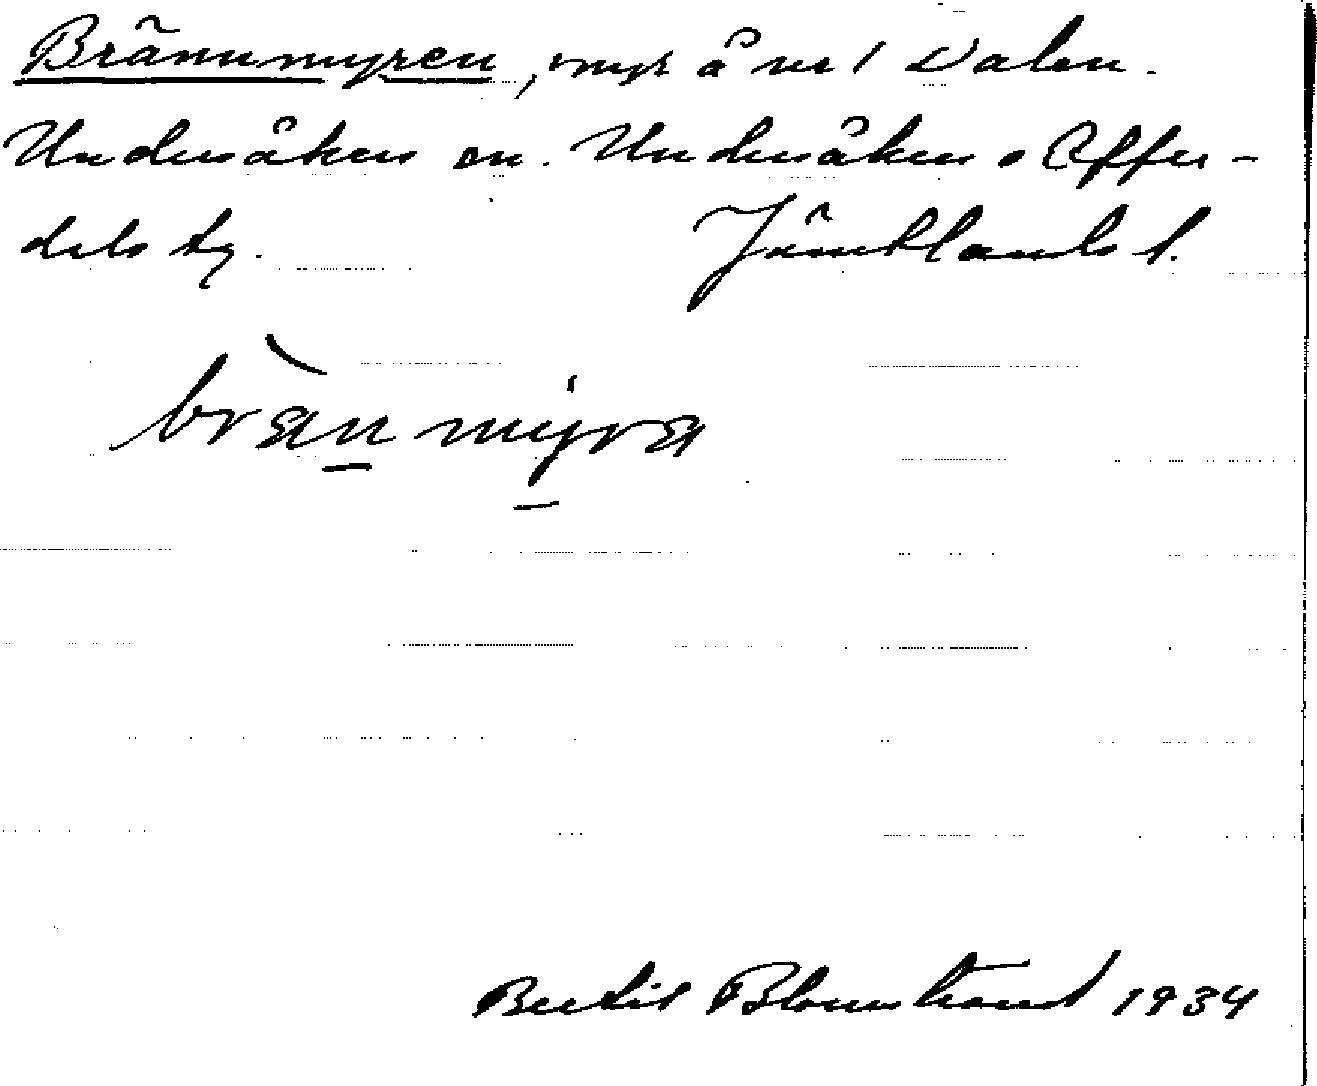 Brännmyren, myr å nr 1 Dalen.
Undersåkers sn. Undersåkers o Offer-
dals tg. Jämtlands l.
brän myra
Bertil Blomstrand 1934